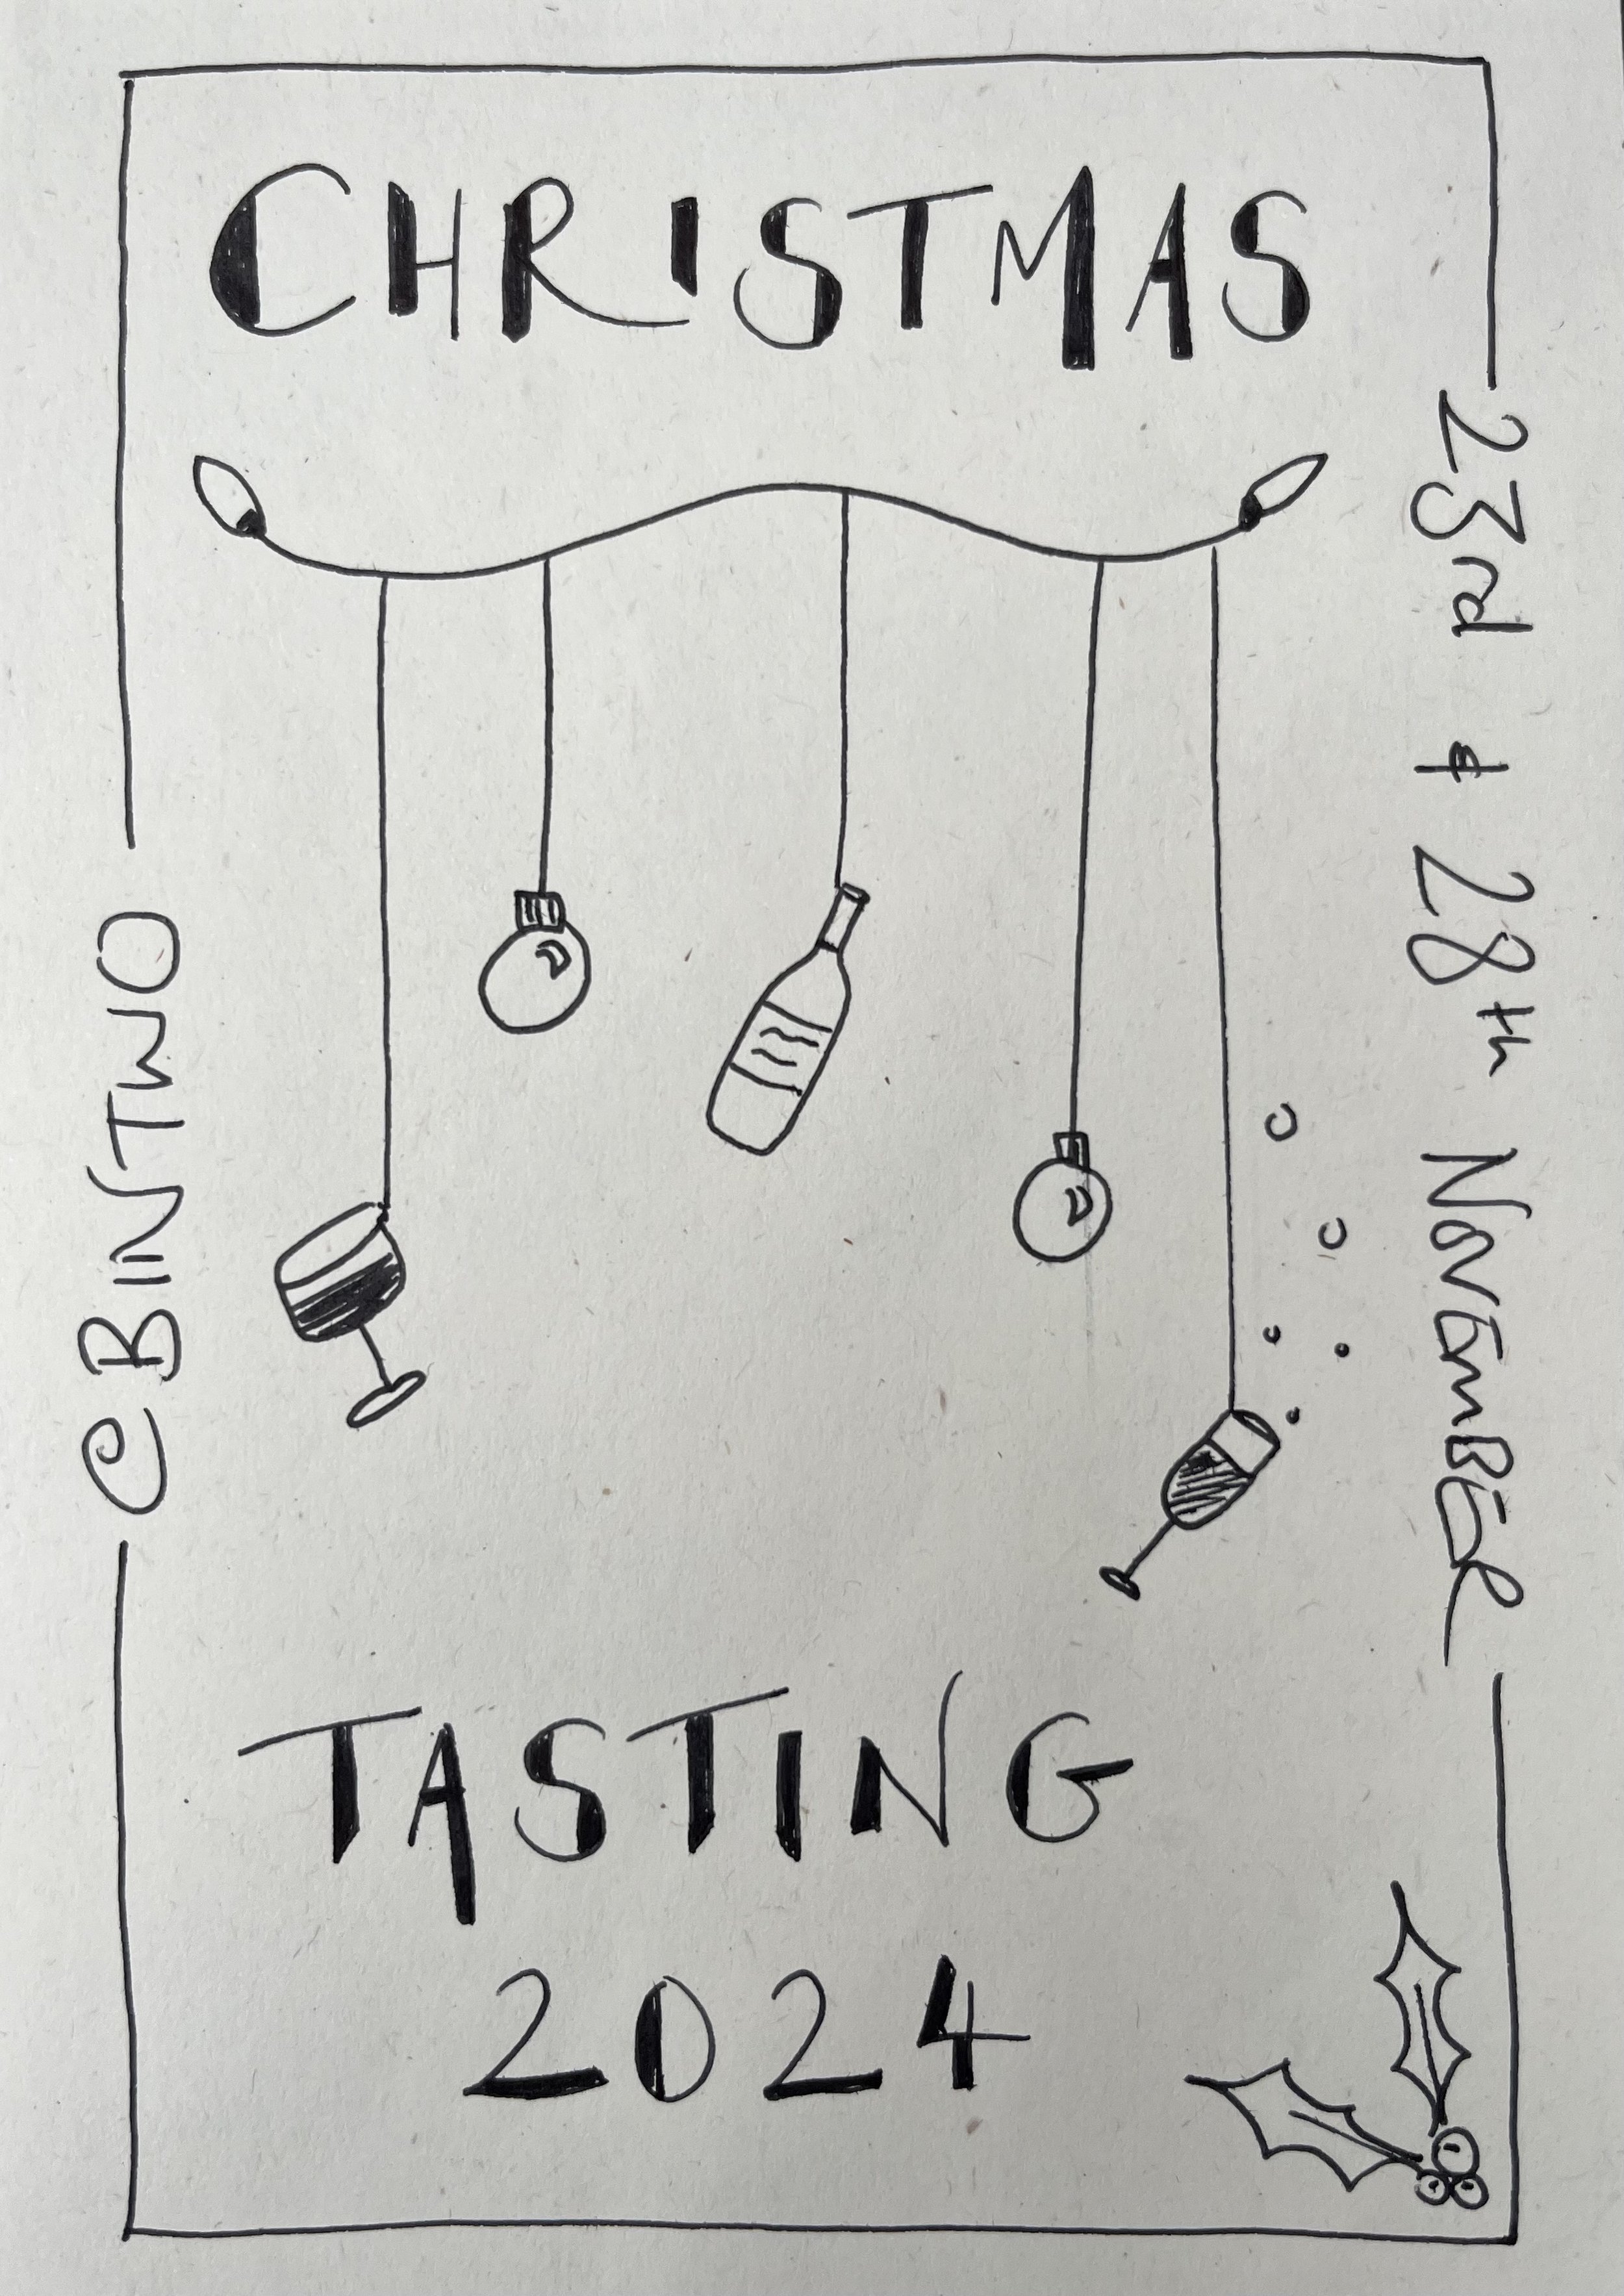 CHRISTMAS
23rd & 28th NOVEMBER
@BINTWO
TASTING
2024